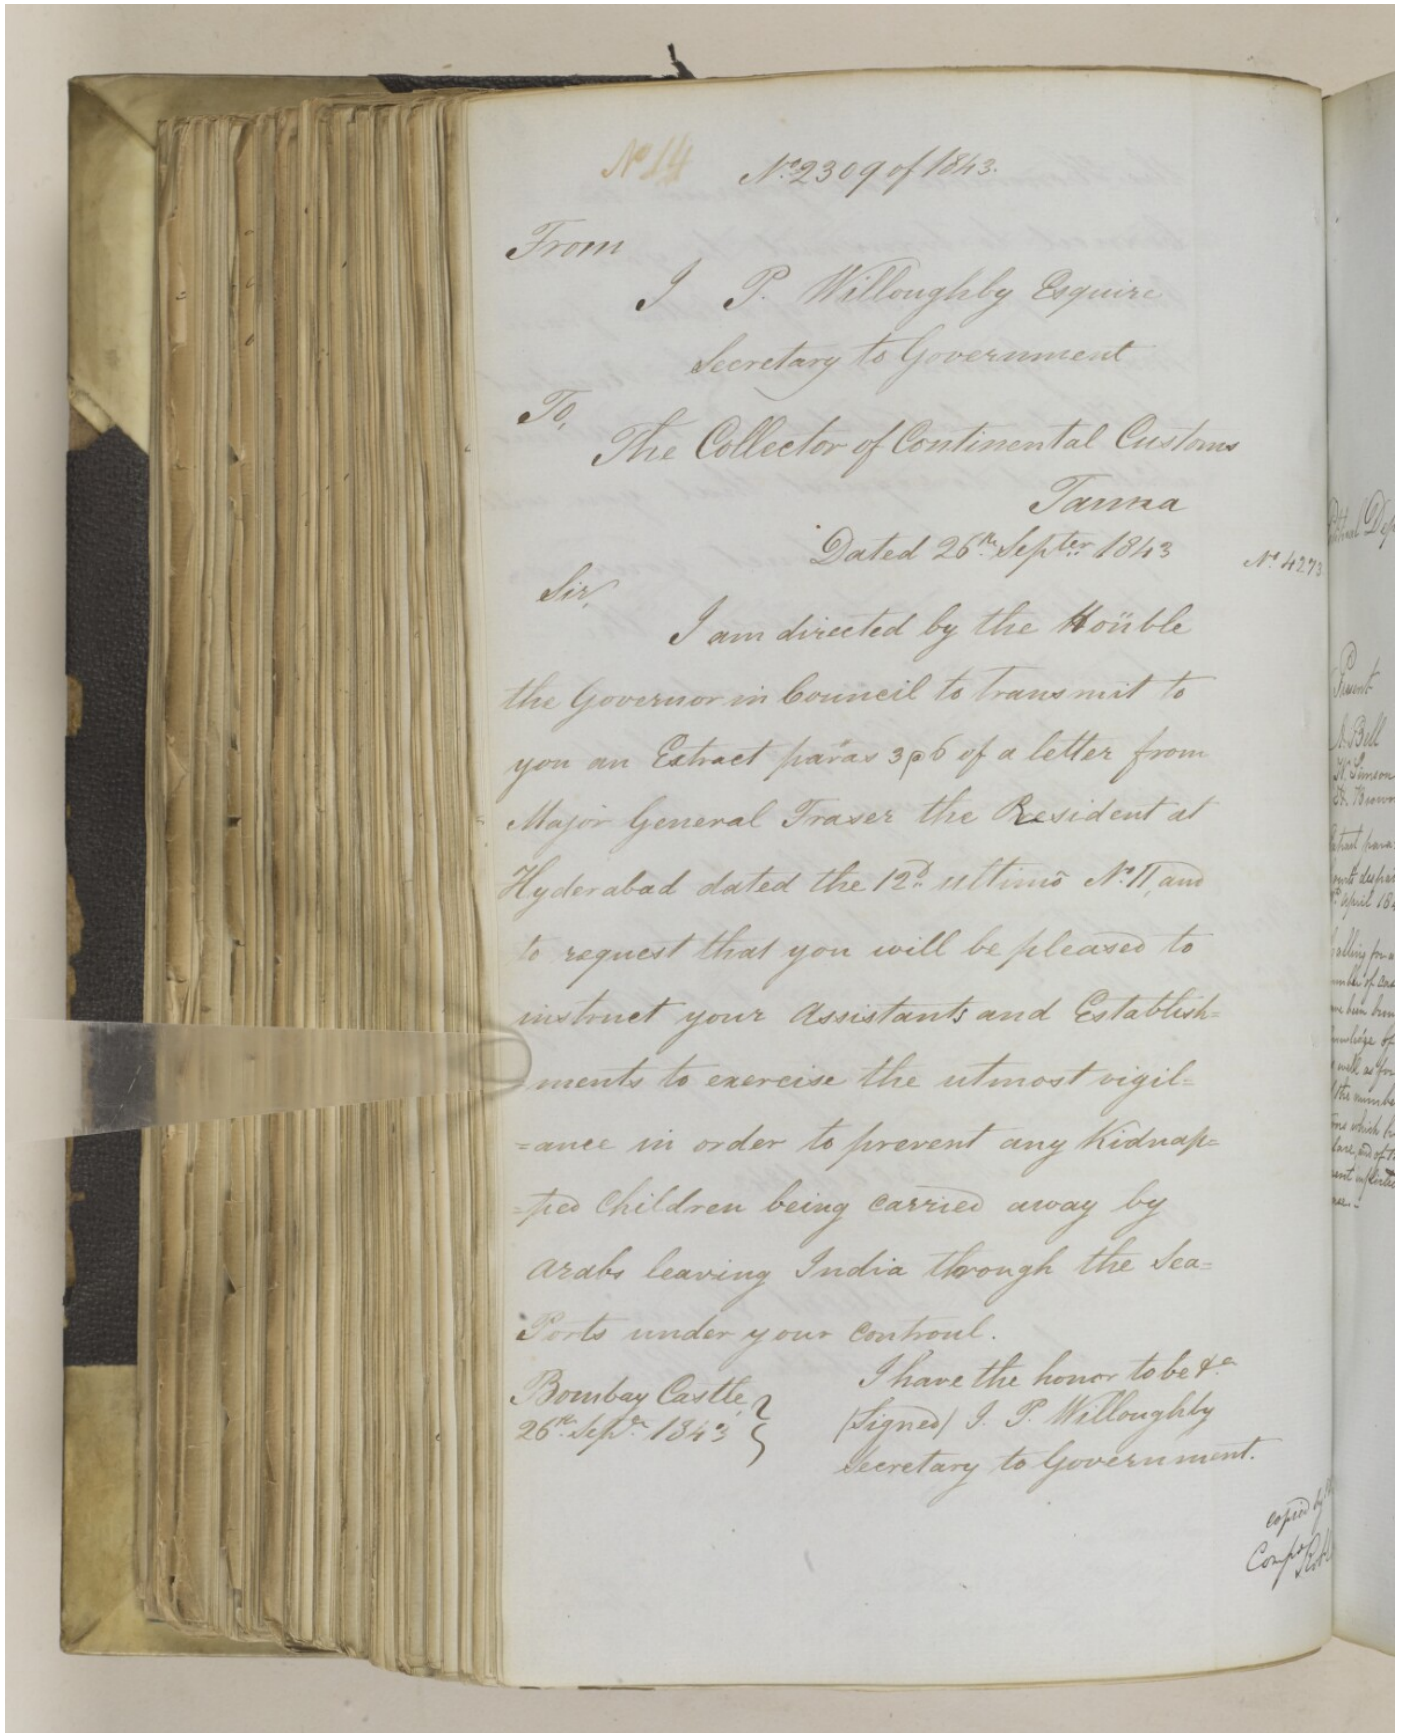 No 14
No. 2309 of 1843.
From
J P. Willoughby Esquire
Secretary to Government
To,
The Collector of Continental Customs
Tanna
Dated 26th Septer. 1843
No. 4273
Sir,
I am directed by the Hon'ble
the Governor in Council to transmit to
you an Extract paras 3 @ 6 of a letter from
Major General Fraser the Resident at
Hyderabad dated the 12d. ultimo No. 11, and
to request that you will be pleased to
instruct your Assistants and Establish=
=ments to exercise the utmost vigil=
=ance in order to prevent any Kidnap=
=ped Children being carried away by
Arabs leaving India through the Sea=
Ports under your controul.
I have the honor to be &a.
Bombay Castle,
(Signed) J. P. Willoughby
26th. Sepr. 1843
Secretary to Government.
copied by
Present
Bell